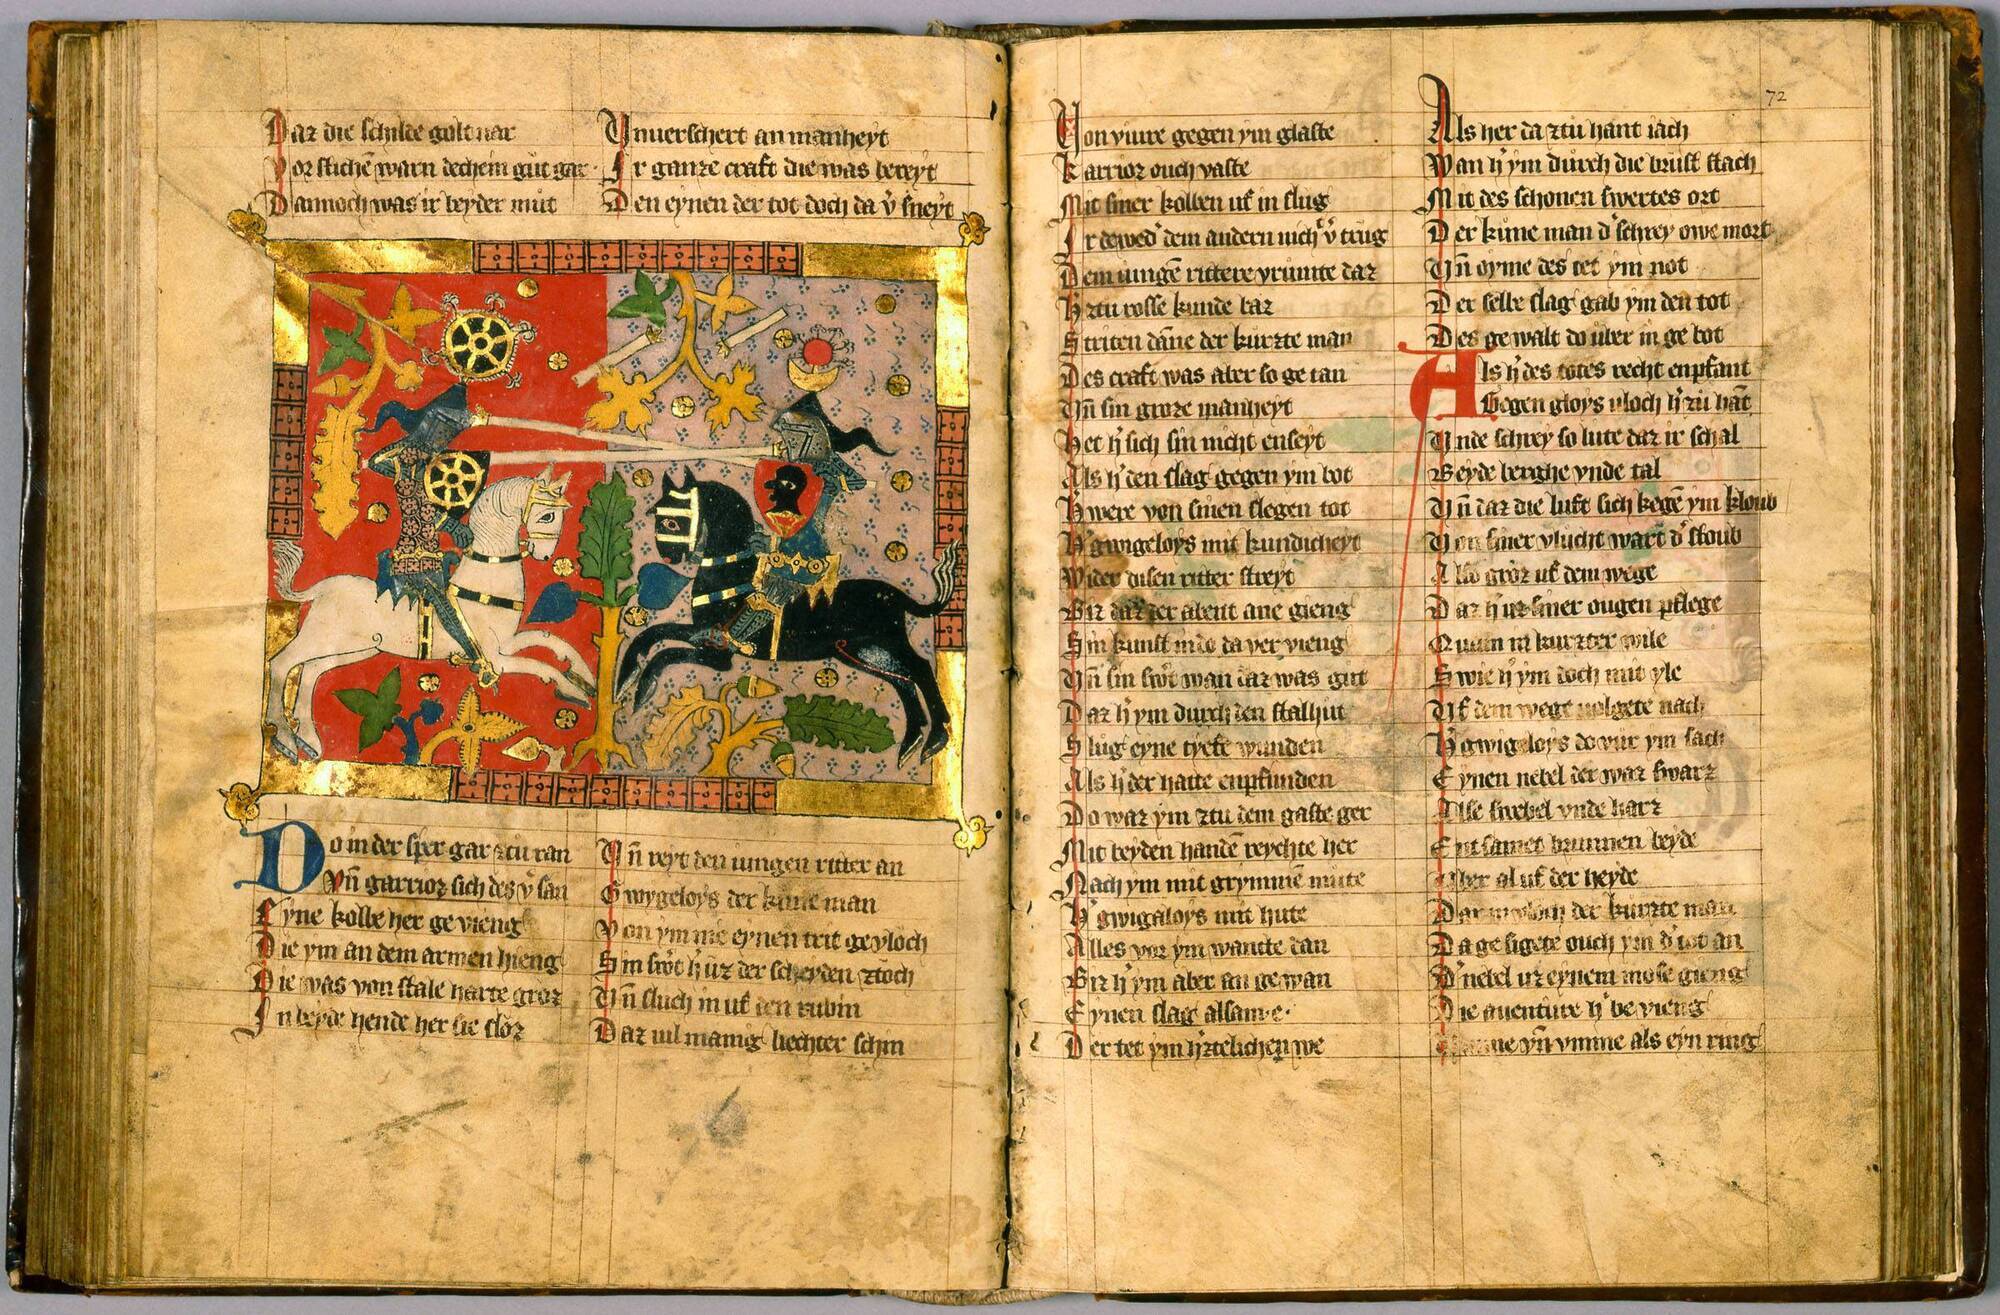 Daz die schilde golt var
Vor stichē warn dechein gut gar
Dannoch was ir beyder mut
Vnuerschert an manheyt
Ir ganze craft die was bereyt
Den eynen der tot doch da v̄sneyt
Do in der sper gar ztu ran
Vn̄ garrioz sich des v̄san
Eyne kolbe her ge vieng
Die ym an dem armen hieng
Die was von stale harte groz
In beyde hende her sie sloz
Vn̄ reyt den iungen ritter an
Gwygeloys der kune man
Von ym nie eynen trit gevloch
Sin swt h' uz der scheyden ztoch
Vn̄ sluch in uf den rubin
Daz vil manig liechter schin
72
Von viure gegen ym glaste
Karrioz ouch vaste
Mit siner kolben uf in slug
Ir deweď dem andern nicht v̄trug
Dem iungē rittere vrumte daz
H' ztu rosse kunde baz
Striten dāne der kurzte man
Des craft was aber so ge tan
Vn̄ sin groze manheyt
Het h' sich sin nicht enseyt
Als h' den slag gegen ym bot
H' were von sinen slegen tot
H' gwigeloys mit kundicheyt
Wider disen ritter streyt
Biz daz der abent ane gieng
Sin kunst in do da ver vieng
Vn̄ sin swt wan daz was gut
Daz h' ym durch den stalhut
Slug eyne tyefe wunden
Als h' der hatte enpfunden
Do waz ym ztu dem gaste ger
Mit beyden handē reychte her
Nach ym mit grymmē mute
H' gwigaloys mit hute
Alles vor ym wante dan
Biz h' ym aber an gewan
Eynen slag alsam e
Der tet ym h'ztelichen we
Als her da ztu hant iach
Wan h' ym durch die brust stach
Mit des schonen swertes ort
Der kune man ď schrey owe mort
Vn̄ oyme des tet ym not
Der selbe slag gab ym den tot
Des gewalt do uber in ge bot
Als h' des totes recht enpfant
Gegen gloys vloch h' zu hāt
Vnde schrey so lute daz ir schal
Beyde berghe vnde tal
Vn̄ daz die luft sich kegē ym kloub
Von siner vlucht wart ď stoub
Also groz uf dem wege
Daz h' uz siner ougen pflege
Quam in kurzter wile
Swie h' ym doch mit yle
Uf dem wege volgete nach
H' gwigeloys do vur ym sach
Eynen nebel der waz swarz
Alse swebel vnde harz
Entsamet brunnen beyde
Vber al uf der heyde
Dar in vloch der kurzte man
Da ge sigete ouch ym ď tot an
Ď nebel uz eynem mose gieng
Die auenture h' be vieng
vmme vn̄ vmme als eyn ring